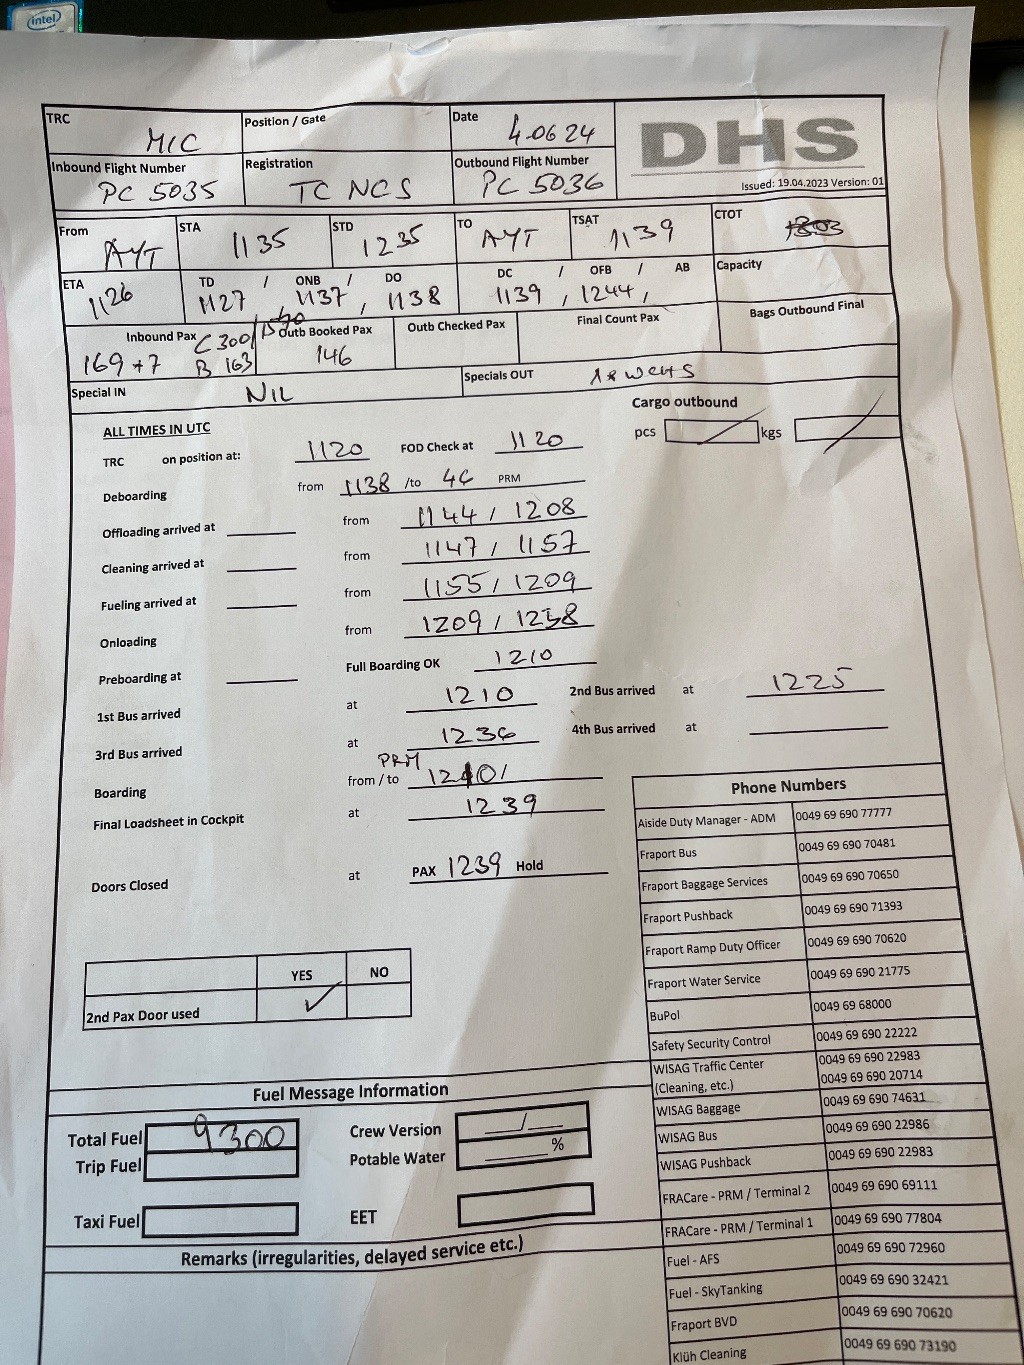 intel
TRC MIC Position / Gate Date 4.06 24 DHS
Inbound Flight Number PC 5035 Registration TC NCS Outbound Flight Number PC 5036 Issued: 19.04.2023 Version: 01
From AYT STA 1135 STD 1235 TO AYT TSAT 1139 CTOT
ETA 1126 TD / ONB / DO 1127, 1137, 1138 DC / OFB / AB 1139, 1244, Capacity
Inbound Pax 169+7 C 300/ B 163 Outb Booked Pax 146 Outb Checked Pax Final Count Pax Bags Outbound Final
Special IN NIL Specials OUT
ALL TIMES IN UTC Cargo outbound
pcs kgs
TRC on position at: 1120 FOD Check at 1120
Deboarding from 1138 /to 46 PRM
Offloading arrived at from 1144 / 1208
Cleaning arrived at from 1147 / 1157
Fueling arrived at from 1155 / 1209
Onloading from 1209 / 1238
Preboarding at Full Boarding OK 1210
1st Bus arrived at 1210 2nd Bus arrived at 1225
3rd Bus arrived at 1236 4th Bus arrived at
PRM
Boarding from / to
Final Loadsheet in Cockpit at 1239
Doors Closed at PAX 1239 Hold
YES NO
2nd Pax Door used ✓
Phone Numbers
Aiside Duty Manager - ADM 0049 69 690 77777
Fraport Bus 0049 69 690 70481
Fraport Baggage Services 0049 69 690 70650
Fraport Pushback 0049 69 690 71393
Fraport Ramp Duty Officer 0049 69 690 70620
Fraport Water Service 0049 69 690 21775
BuPol 0049 69 68000
Safety Security Control 0049 69 690 22222
WISAG Traffic Center 0049 69 690 22983
(Cleaning, etc.) 0049 69 690 20714
WISAG Baggage 0049 69 690 74631
WISAG Bus 0049 69 690 22986
WISAG Pushback 0049 69 690 22983
FRACare - PRM / Terminal 2 0049 69 690 69111
FRACare - PRM / Terminal 1 0049 69 690 77804
Fuel - AFS 0049 69 690 72960
Fuel - SkyTanking 0049 69 690 32421
Fraport BVD 0049 69 690 70620
Klüh Cleaning 0049 69 690 73190
Fuel Message Information
Total Fuel 9300 Crew Version /
Trip Fuel Potable Water %
Taxi Fuel EET
Remarks (irregularities, delayed service etc.)